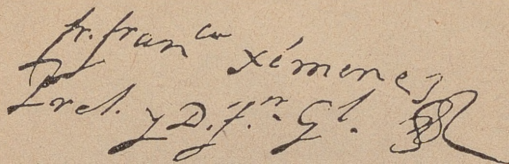 fr. fran^co Ximenez
Prel. y D.f.^n G^l.